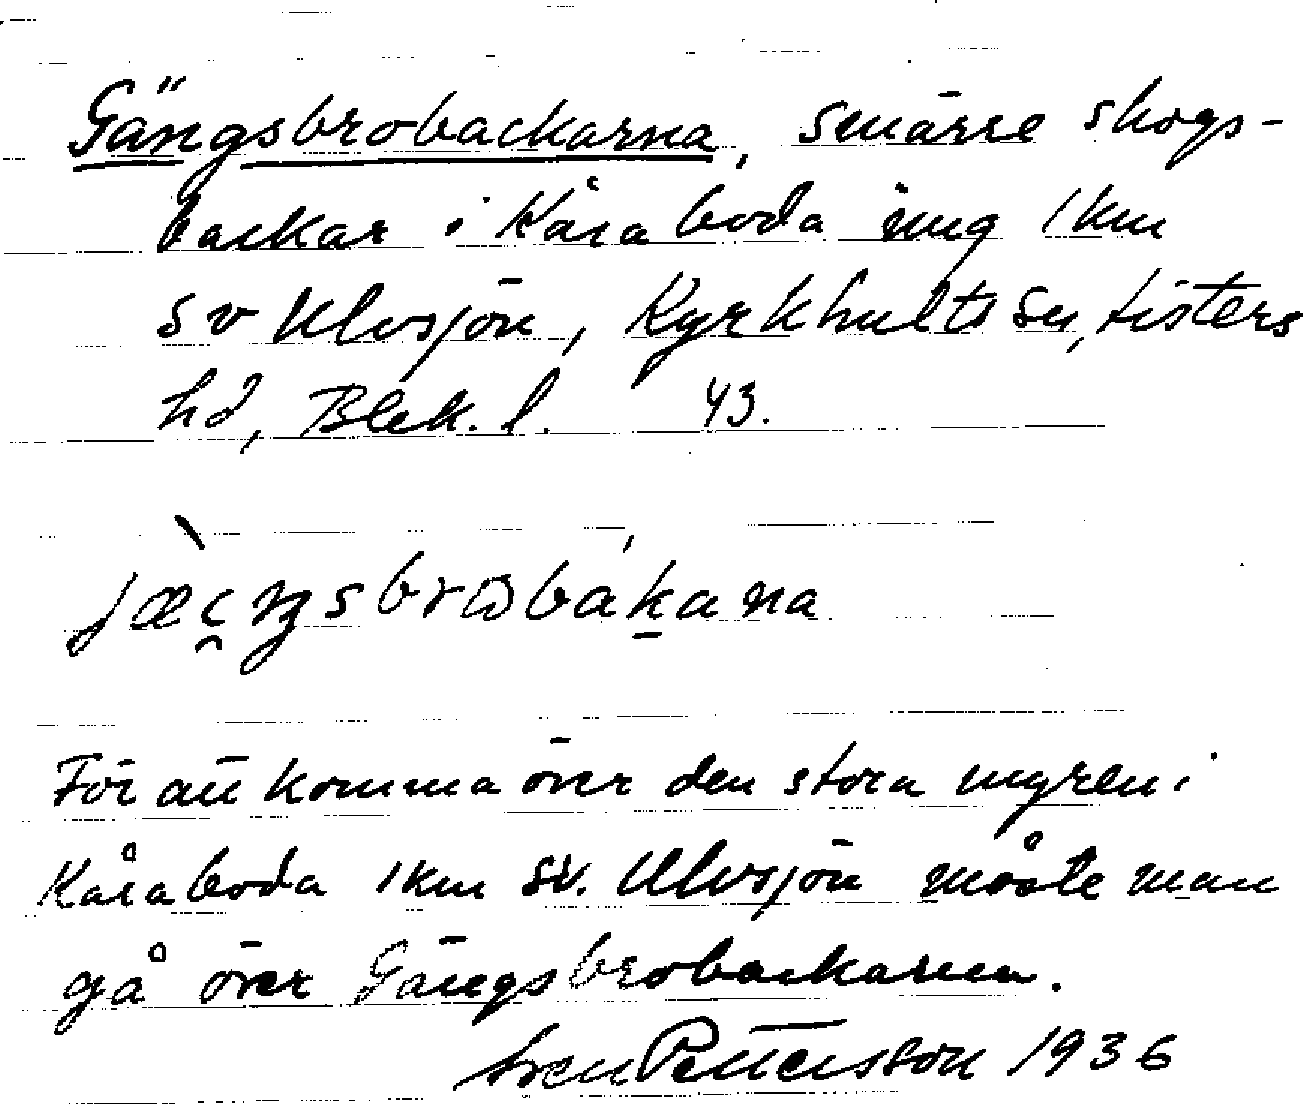 Gängsbrobackarna, smärre skogs-
backar i Kåraboda ung 1 km
sv Ulvsjön, Kyrkhults sn, Listers
hd, Blek. l. 43.
För att komma över den stora myren i
Kåraboda 1 km sv. Ulvsjön måste man
gå över Gängsbrobackarna.
Sven Pettersson 1936